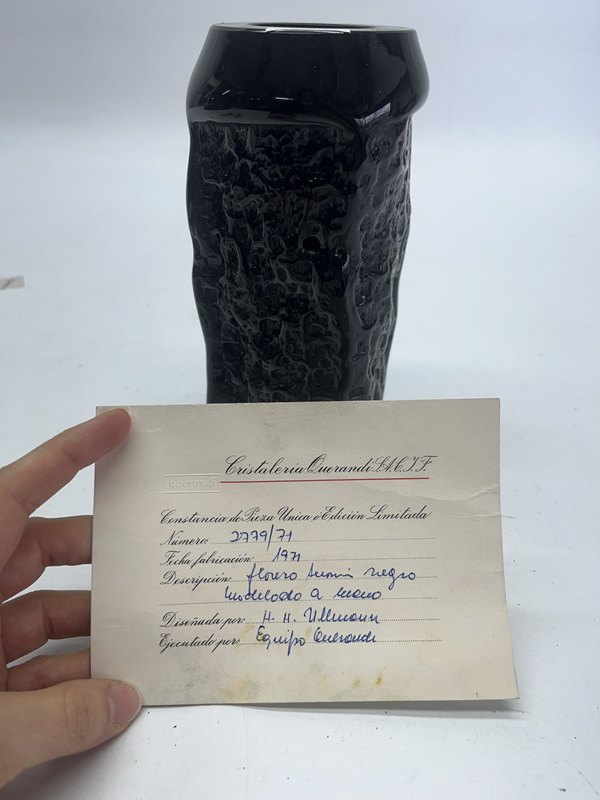 Cristaleria Querandi S.A.C.I.F.
querandi
Constancia de Pieza Unica ó Edición Limitada
Número: 2779/71
Fecha fabricación: 1971
Descripción: florero negro
modelado a mano
Diseñada por: H. H. Ullmann
Ejecutado por: Equipo Querandi